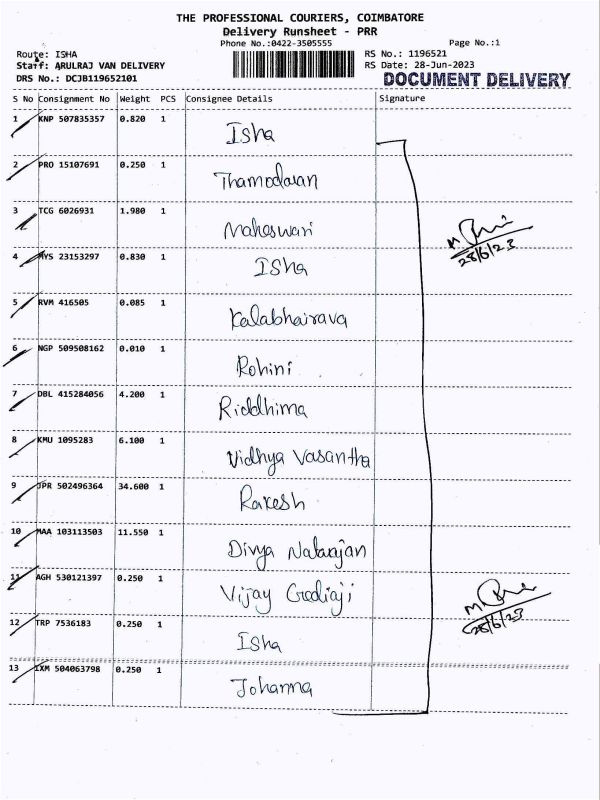 THE PROFESSIONAL COURIERS, COIMBATORE
Delivery Runsheet - PRR
Phone No.:0422-3505555 Page No.:1
Route: ISHA RS No.: 1196521
Staff: ARULRAJ VAN DELIVERY RS Date: 28-Jun-2023
DRS No.: DCJB119652101 DOCUMENT DELIVERY
S No Consignment No Weight PCS Consignee Details Signature
1 KNP 507835357 0.820 1 Isha
2 PRO 15107691 0.250 1 Thamodaran
3 TCG 6026931 1.980 1 Maheswari
28/6/23
4 MYS 23153297 0.830 1 Isha
5 RVM 416505 0.085 1 Kalabhairava
6 NGP 509508162 0.010 1 Rohini
7 DBL 415284056 4.200 1 Riddhima
8 KMU 1095283 6.100 1 Vidhya Vasantha
9 JPR 502496364 34.600 1 Rakesh
10 MAA 103113503 11.550 1 Divya Natarajan
11 AGH 530121397 0.250 1 Vijay
28/6/23
12 TRP 7536183 0.250 1 Isha
13 IXM 504063798 0.250 1 Johanna